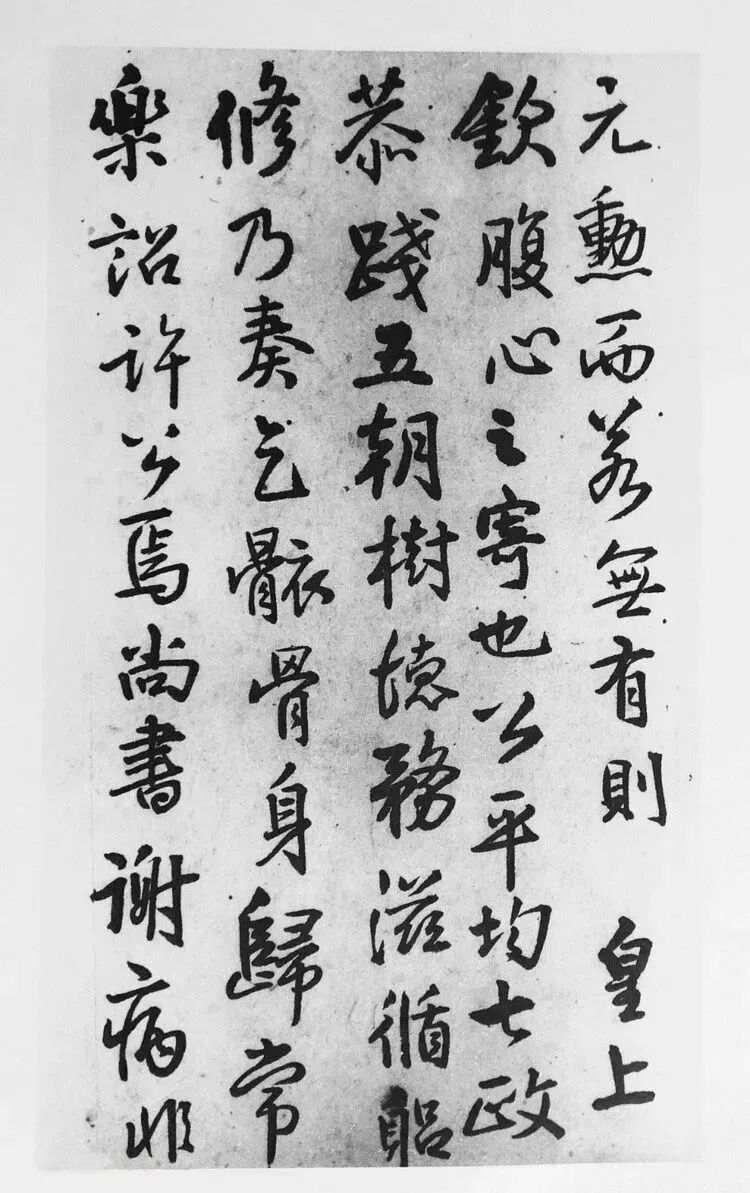 元勳而若無有則 皇上
欽腹心之寄也公平均七政
恭踐五朝樹德務滋循躬
修乃奏乞骸骨身歸常
樂詔許公焉尚書謝病非